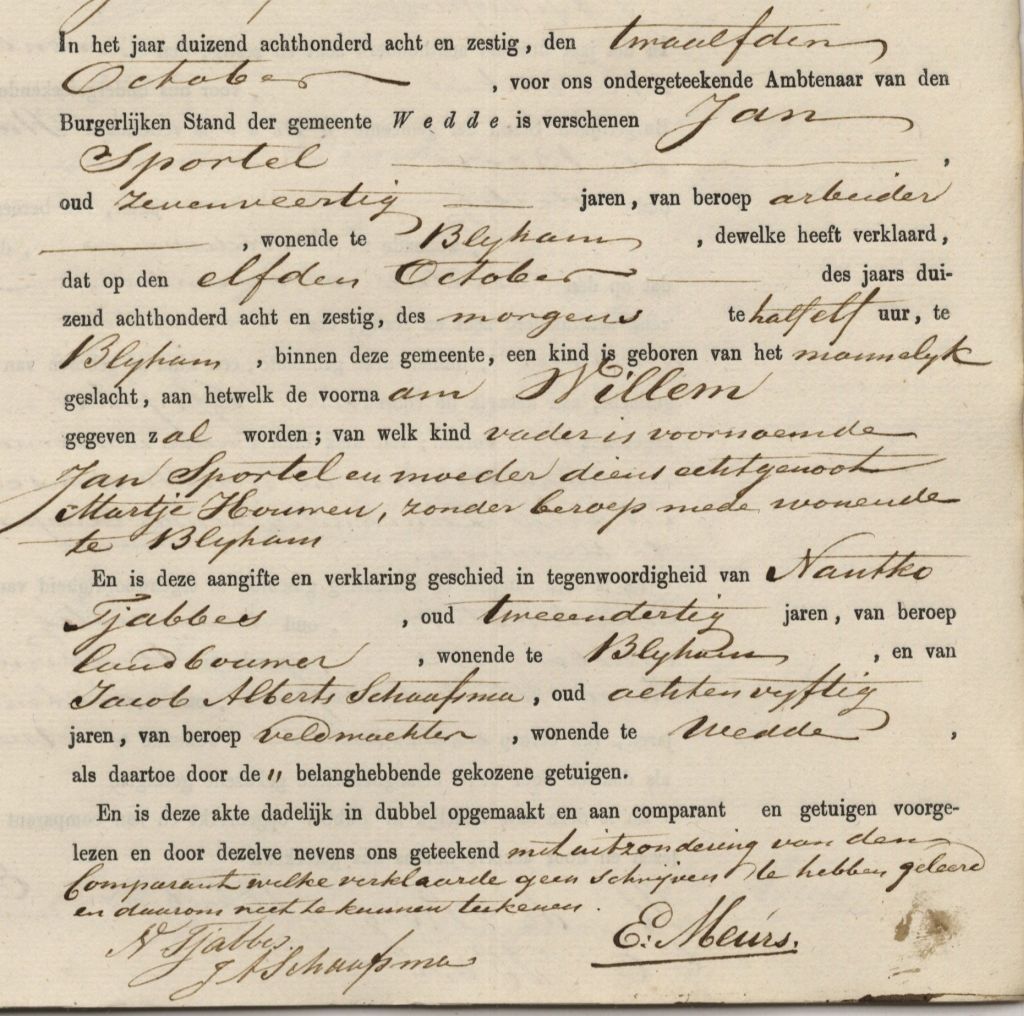 In het jaar duizend achthonderd acht en zestig, den twaalfden
October, voor ons ondergeteekende Ambtenaar van den
Burgerlijken Stand der gemeente Wedde is verschenen Jan
Sportel,
oud zevenveertig jaren, van beroep arbeider
, wonende te Blyham, dewelke heeft verklaard,
dat op den elfden October des jaars dui-
zend achthonderd acht en zestig, des morgens te half elf uur, te
Blyham, binnen deze gemeente, een kind is geboren van het mannelyk
geslacht, aan hetwelk de voornaam Willem
gegeven zal worden; van welk kind vader is voornoemde
Jan Sportel en moeder diens echtgenoot
Martje Houwen, zonder beroep mede wonende
te Blyham
En is deze aangifte en verklaring geschied in tegenwoordigheid van Nantko
Tjabbes, oud tweeendertig jaren, van beroep
landbouwer, wonende te Blyham, en van
Jacob Alberts Schaafsma, oud achtenvyftig
jaren, van beroep veldwachter, wonende te Wedde,
als daartoe door de " belanghebbende gekozene getuigen.
En is deze akte dadelijk in dubbel opgemaakt en aan comparant en getuigen voorge-
lezen en door dezelve nevens ons geteekend met uitzondering van den
Comparant welke verklaarde geen schrijven te hebben geleerd
en daarom niet te kunnen teekenen.
N Tjabbes.
J A Schaafsma
E: Meurs.